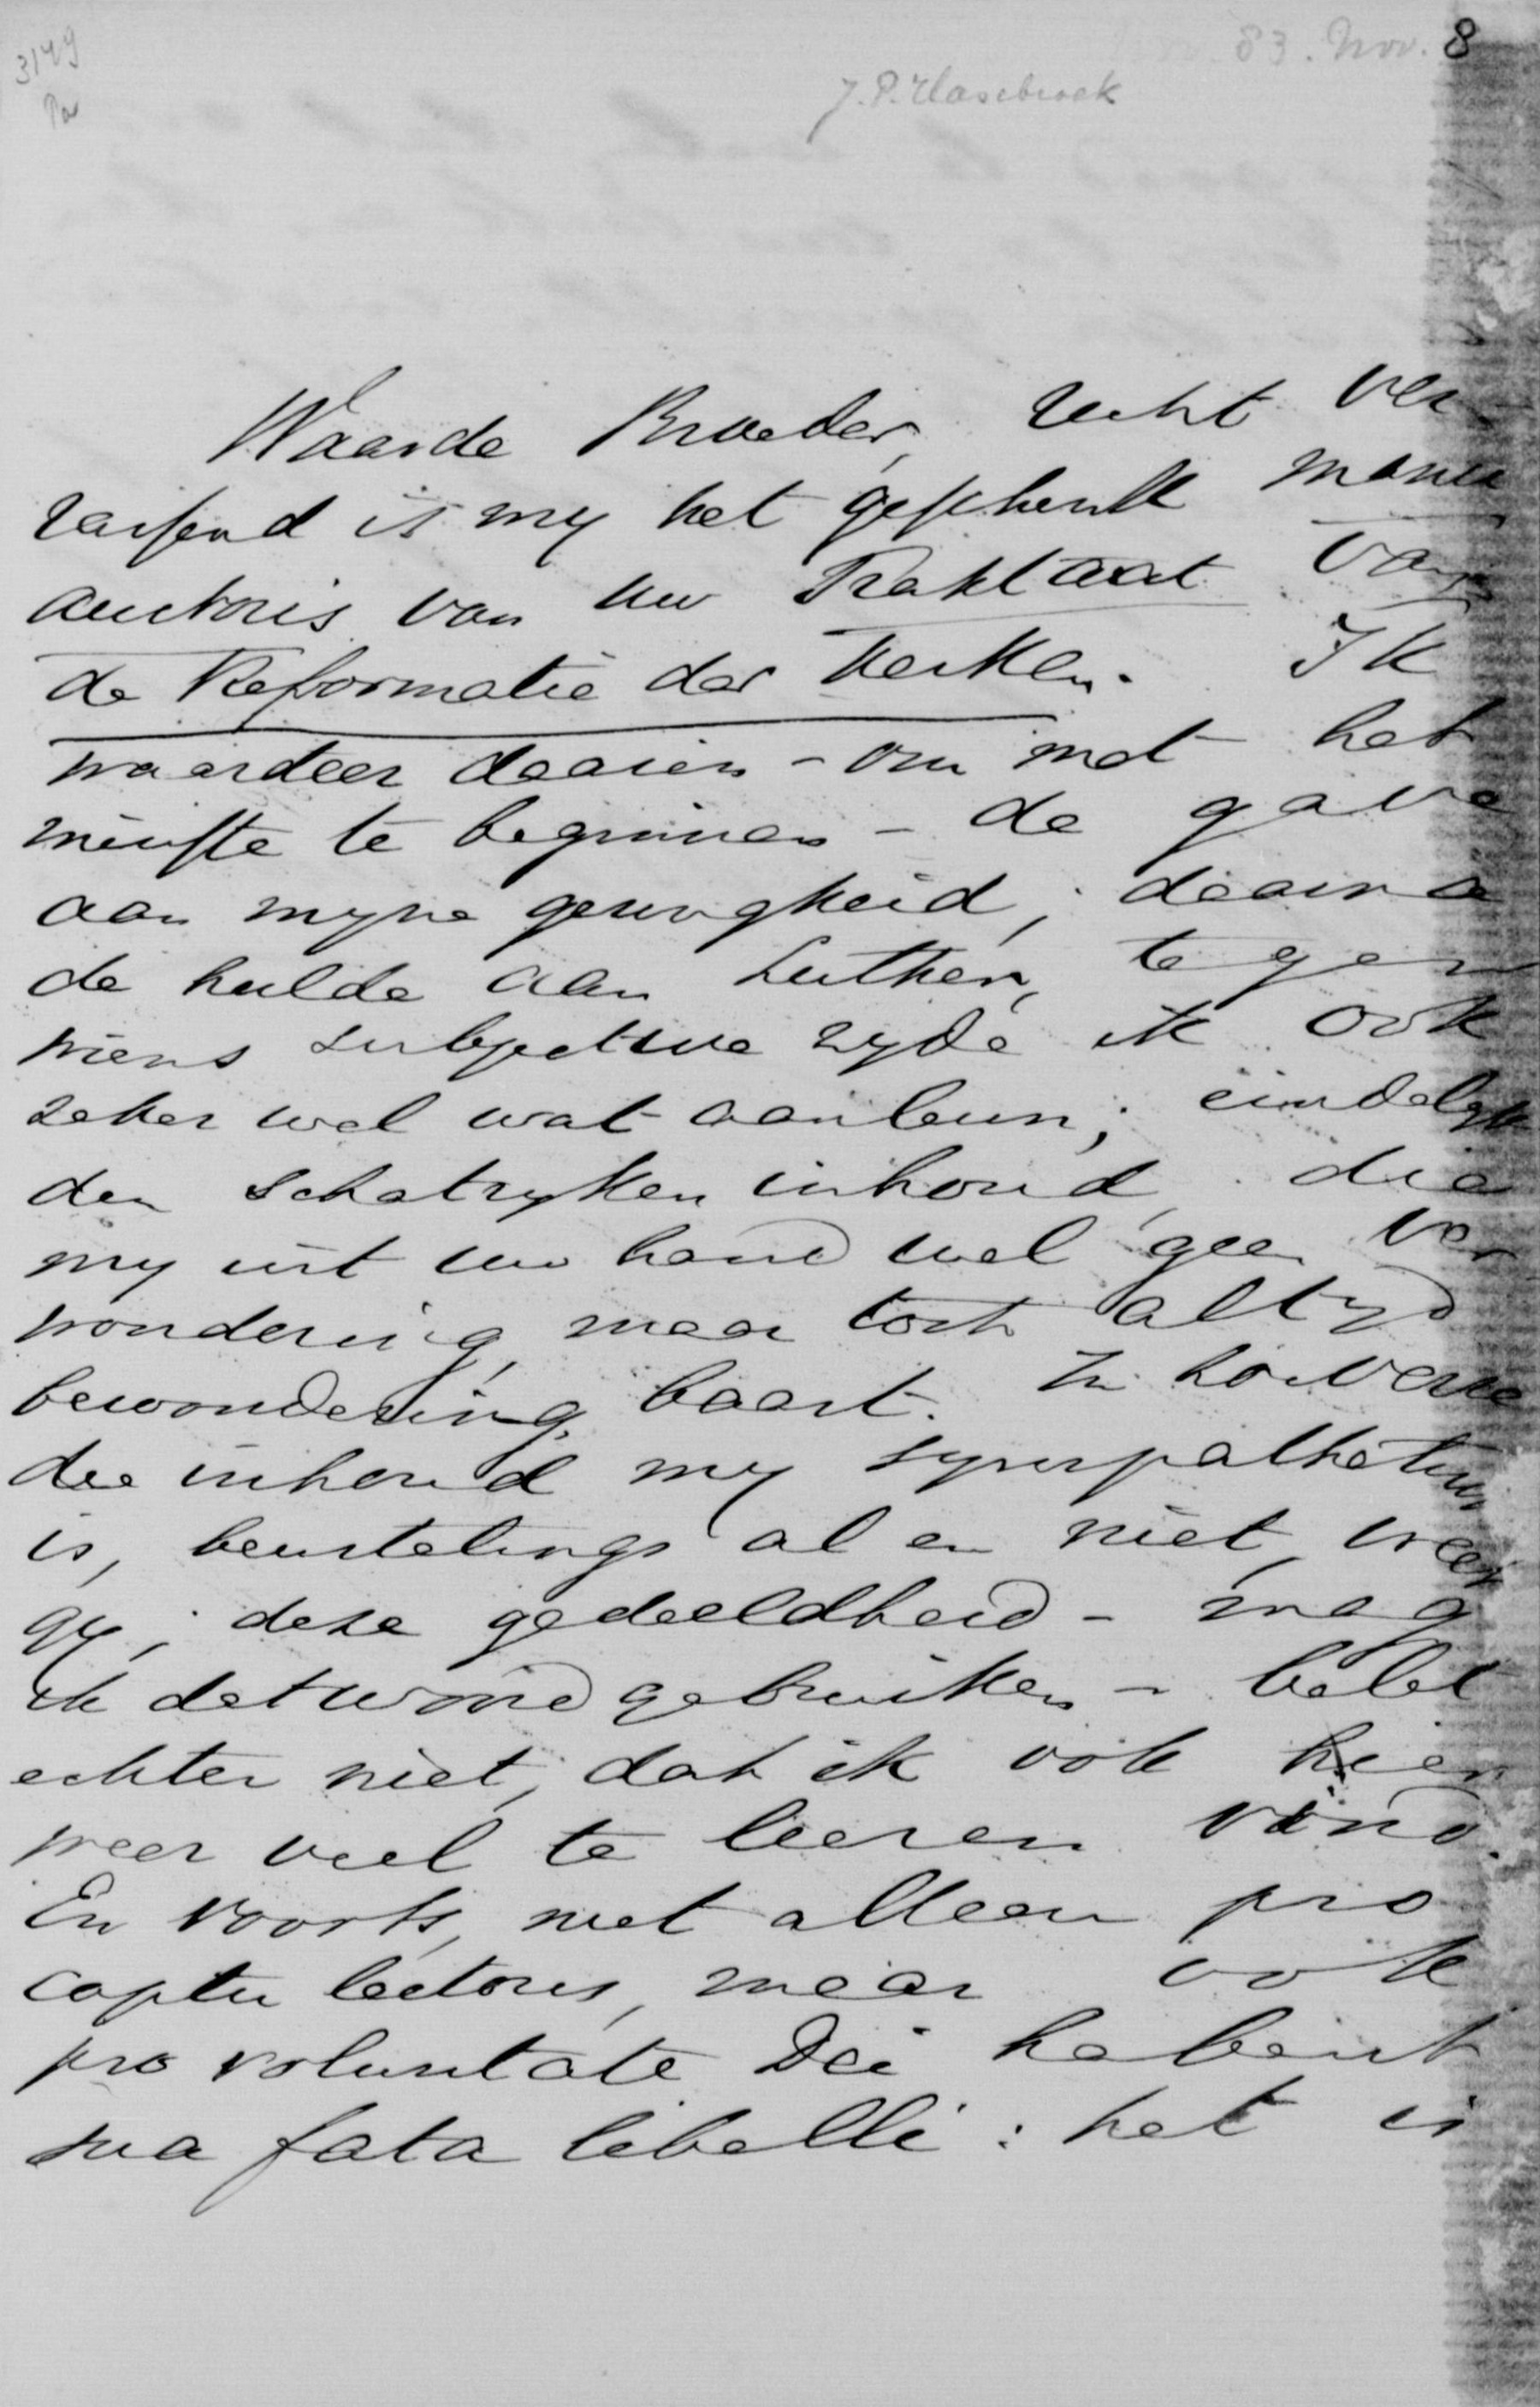 3149
Pa
83. Nov. 8
J.P. Hasebroek
Waarde Broeder, Recht ver-
rassend is my het geschenk manu
auctoris van uw Traktaat van
de Reformatie der Kerken. Ik
waardeer daarin - om met het
minste te beginnen - de gave
aan myne geringheid; daarna
de hulde aan Luther, tegen
wiens subjectieve zyde ik ook
zeker wel wat aanleun; eindelyk
den schatryken inhoud, die
my uit uw hand wel geen ver
wondering, maar toch altyd
bewondering, baart. In hoeverre
die inhoud my sympathetisch
is, beurtelings al en niet, weet
gy; deze gedeeldheid - mag
ik dat woord gebruiken - belet
echter niet, dat ik ook hier
weer veel te leeren vind.
En voorts, niet alleen pro
captu lectoris, maar ook
pro voluntate Dei habent
sua fata libelli: het is